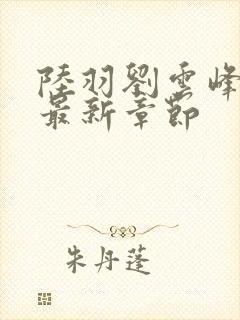 陸羽劉雲峰
最新章節
朱丹蓬